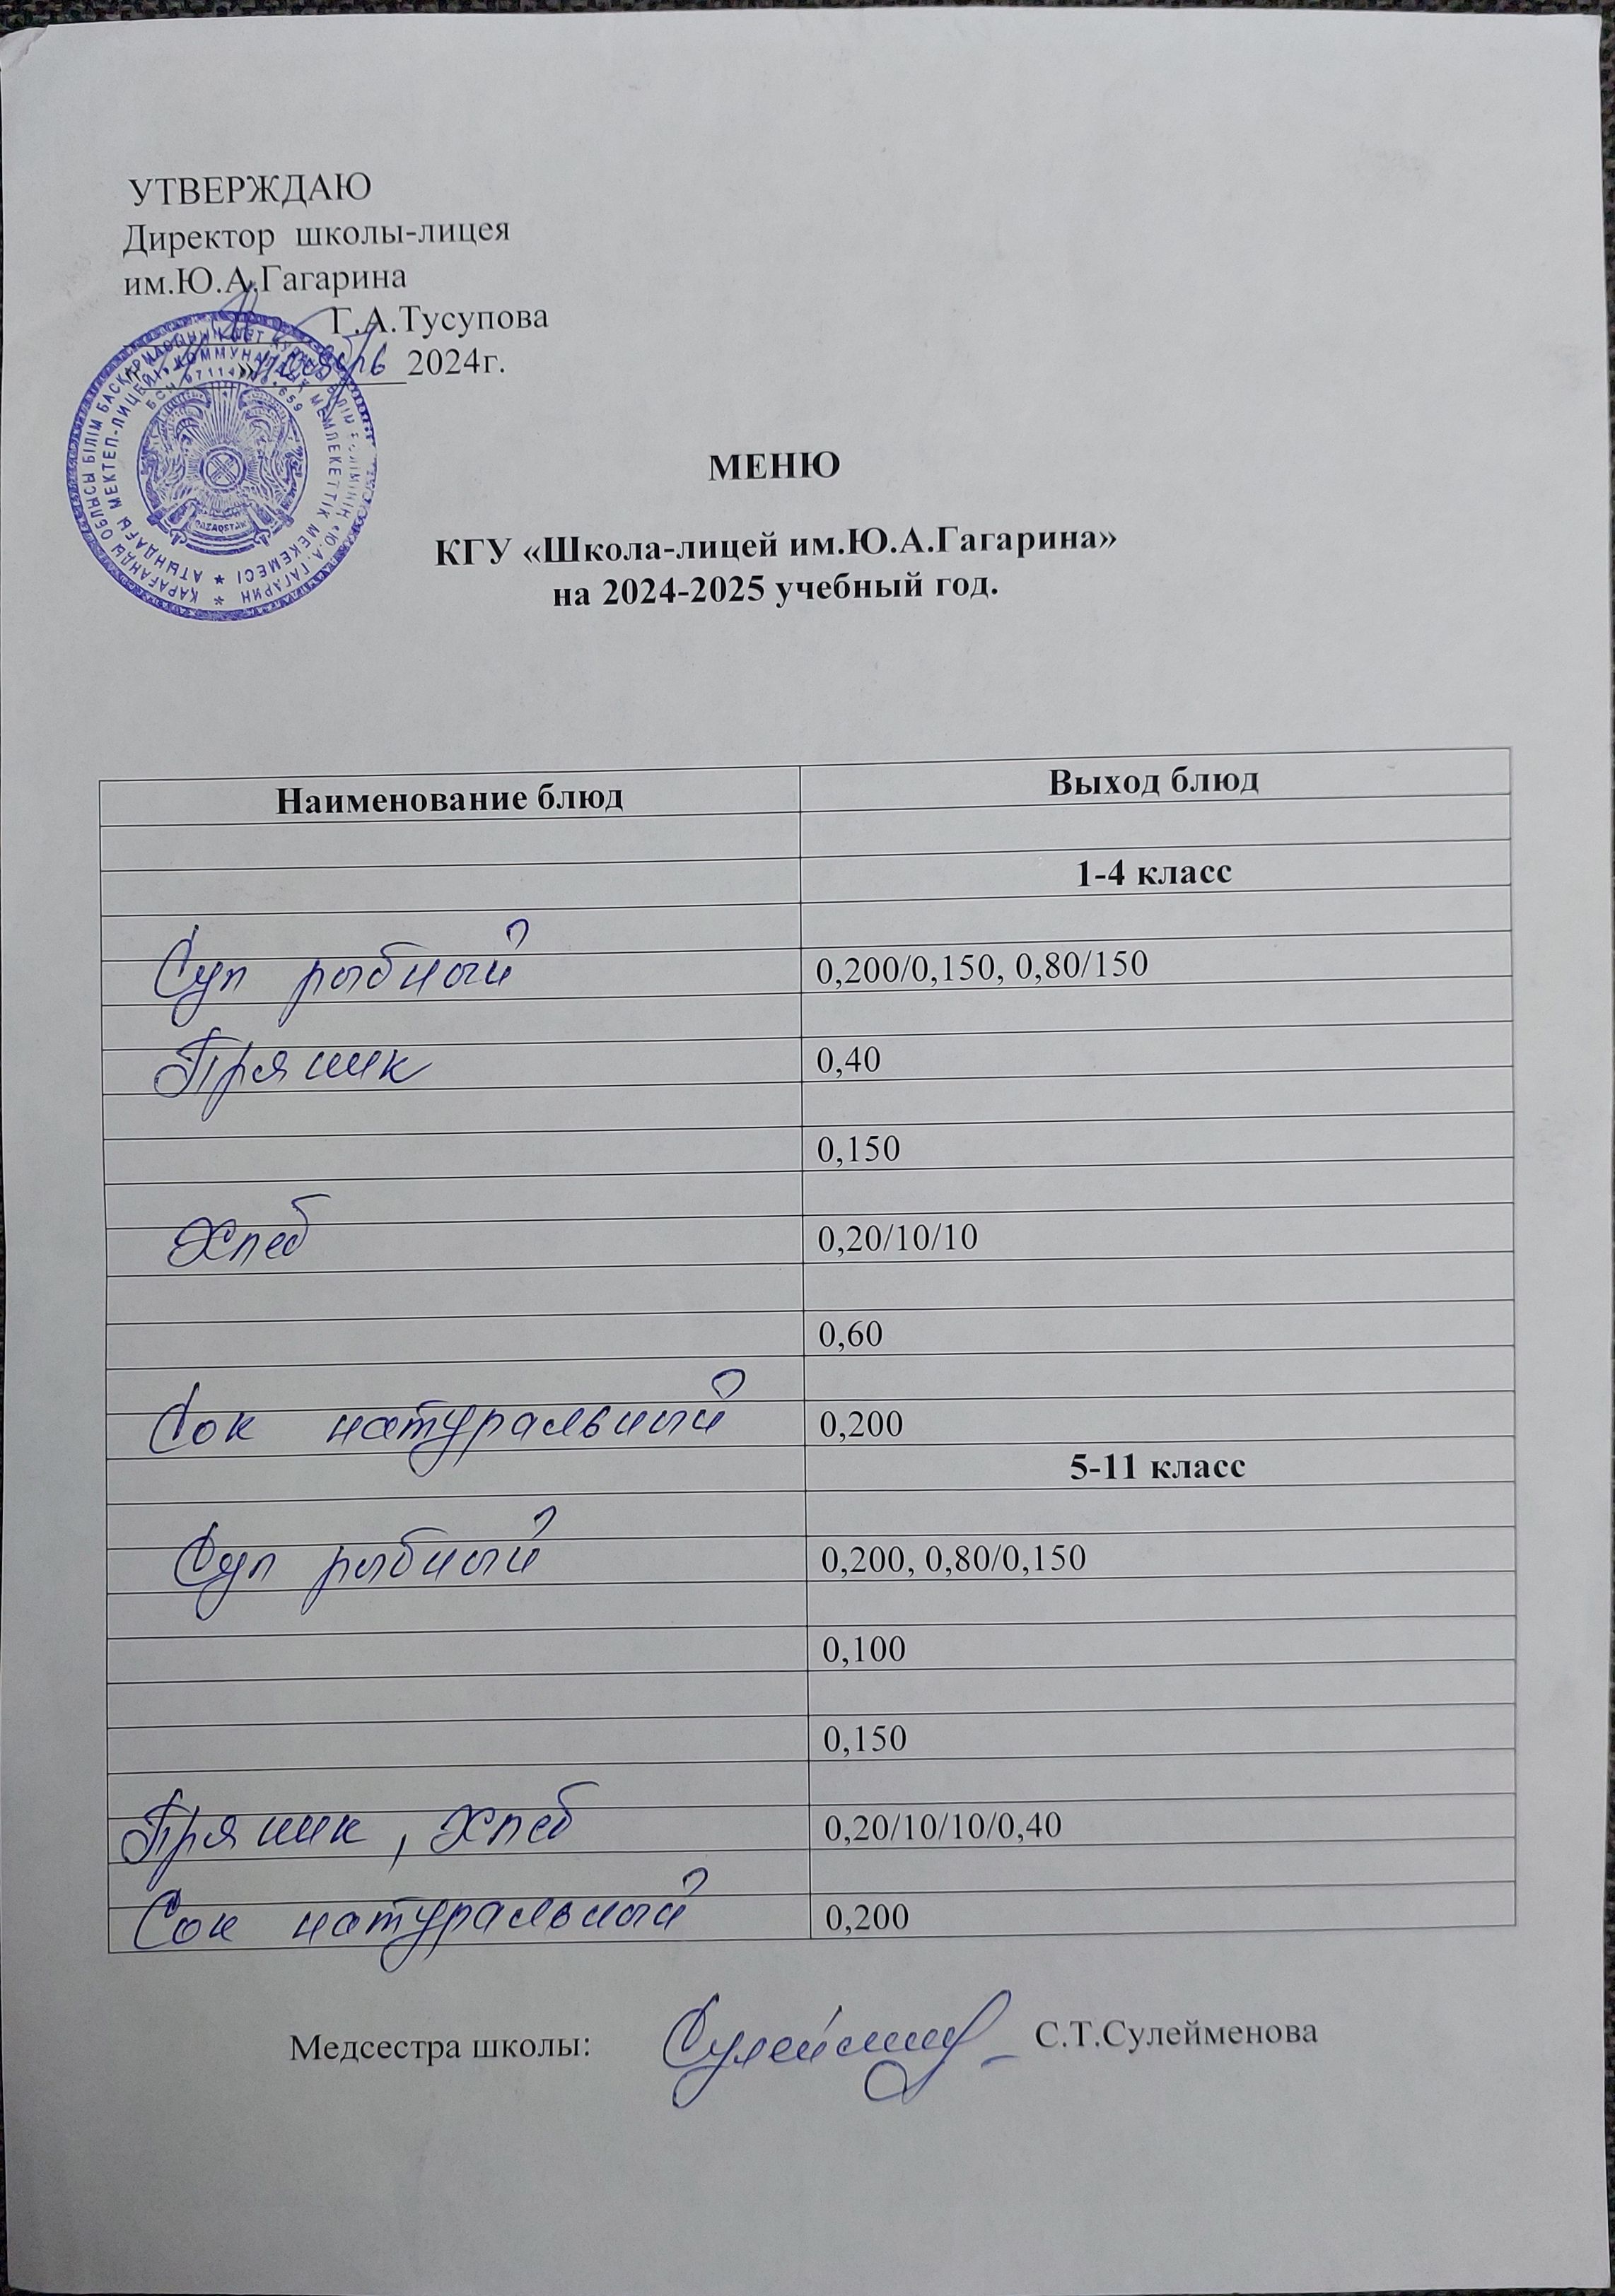 УТВЕРЖДАЮ
Директор школы-лицея
им.Ю.А.Гагарина
Г.А.Тусупова
ноябрь 2024г.
МЕНЮ
КГУ «Школа-лицей им.Ю.А.Гагарина»
на 2024-2025 учебный год.
Наименование блюд Выход блюд
1-4 класс
Суп рыбный 0,200/0,150, 0,80/150
Пряник 0,40
0,150
Хлеб 0,20/10/10
0,60
Сок натуральный 0,200
5-11 класс
Суп рыбный 0,200, 0,80/0,150
0,100
0,150
Пряник, Хлеб 0,20/10/10/0,40
Сок натуральный 0,200
Медсестра школы: С.Т.Сулейменова